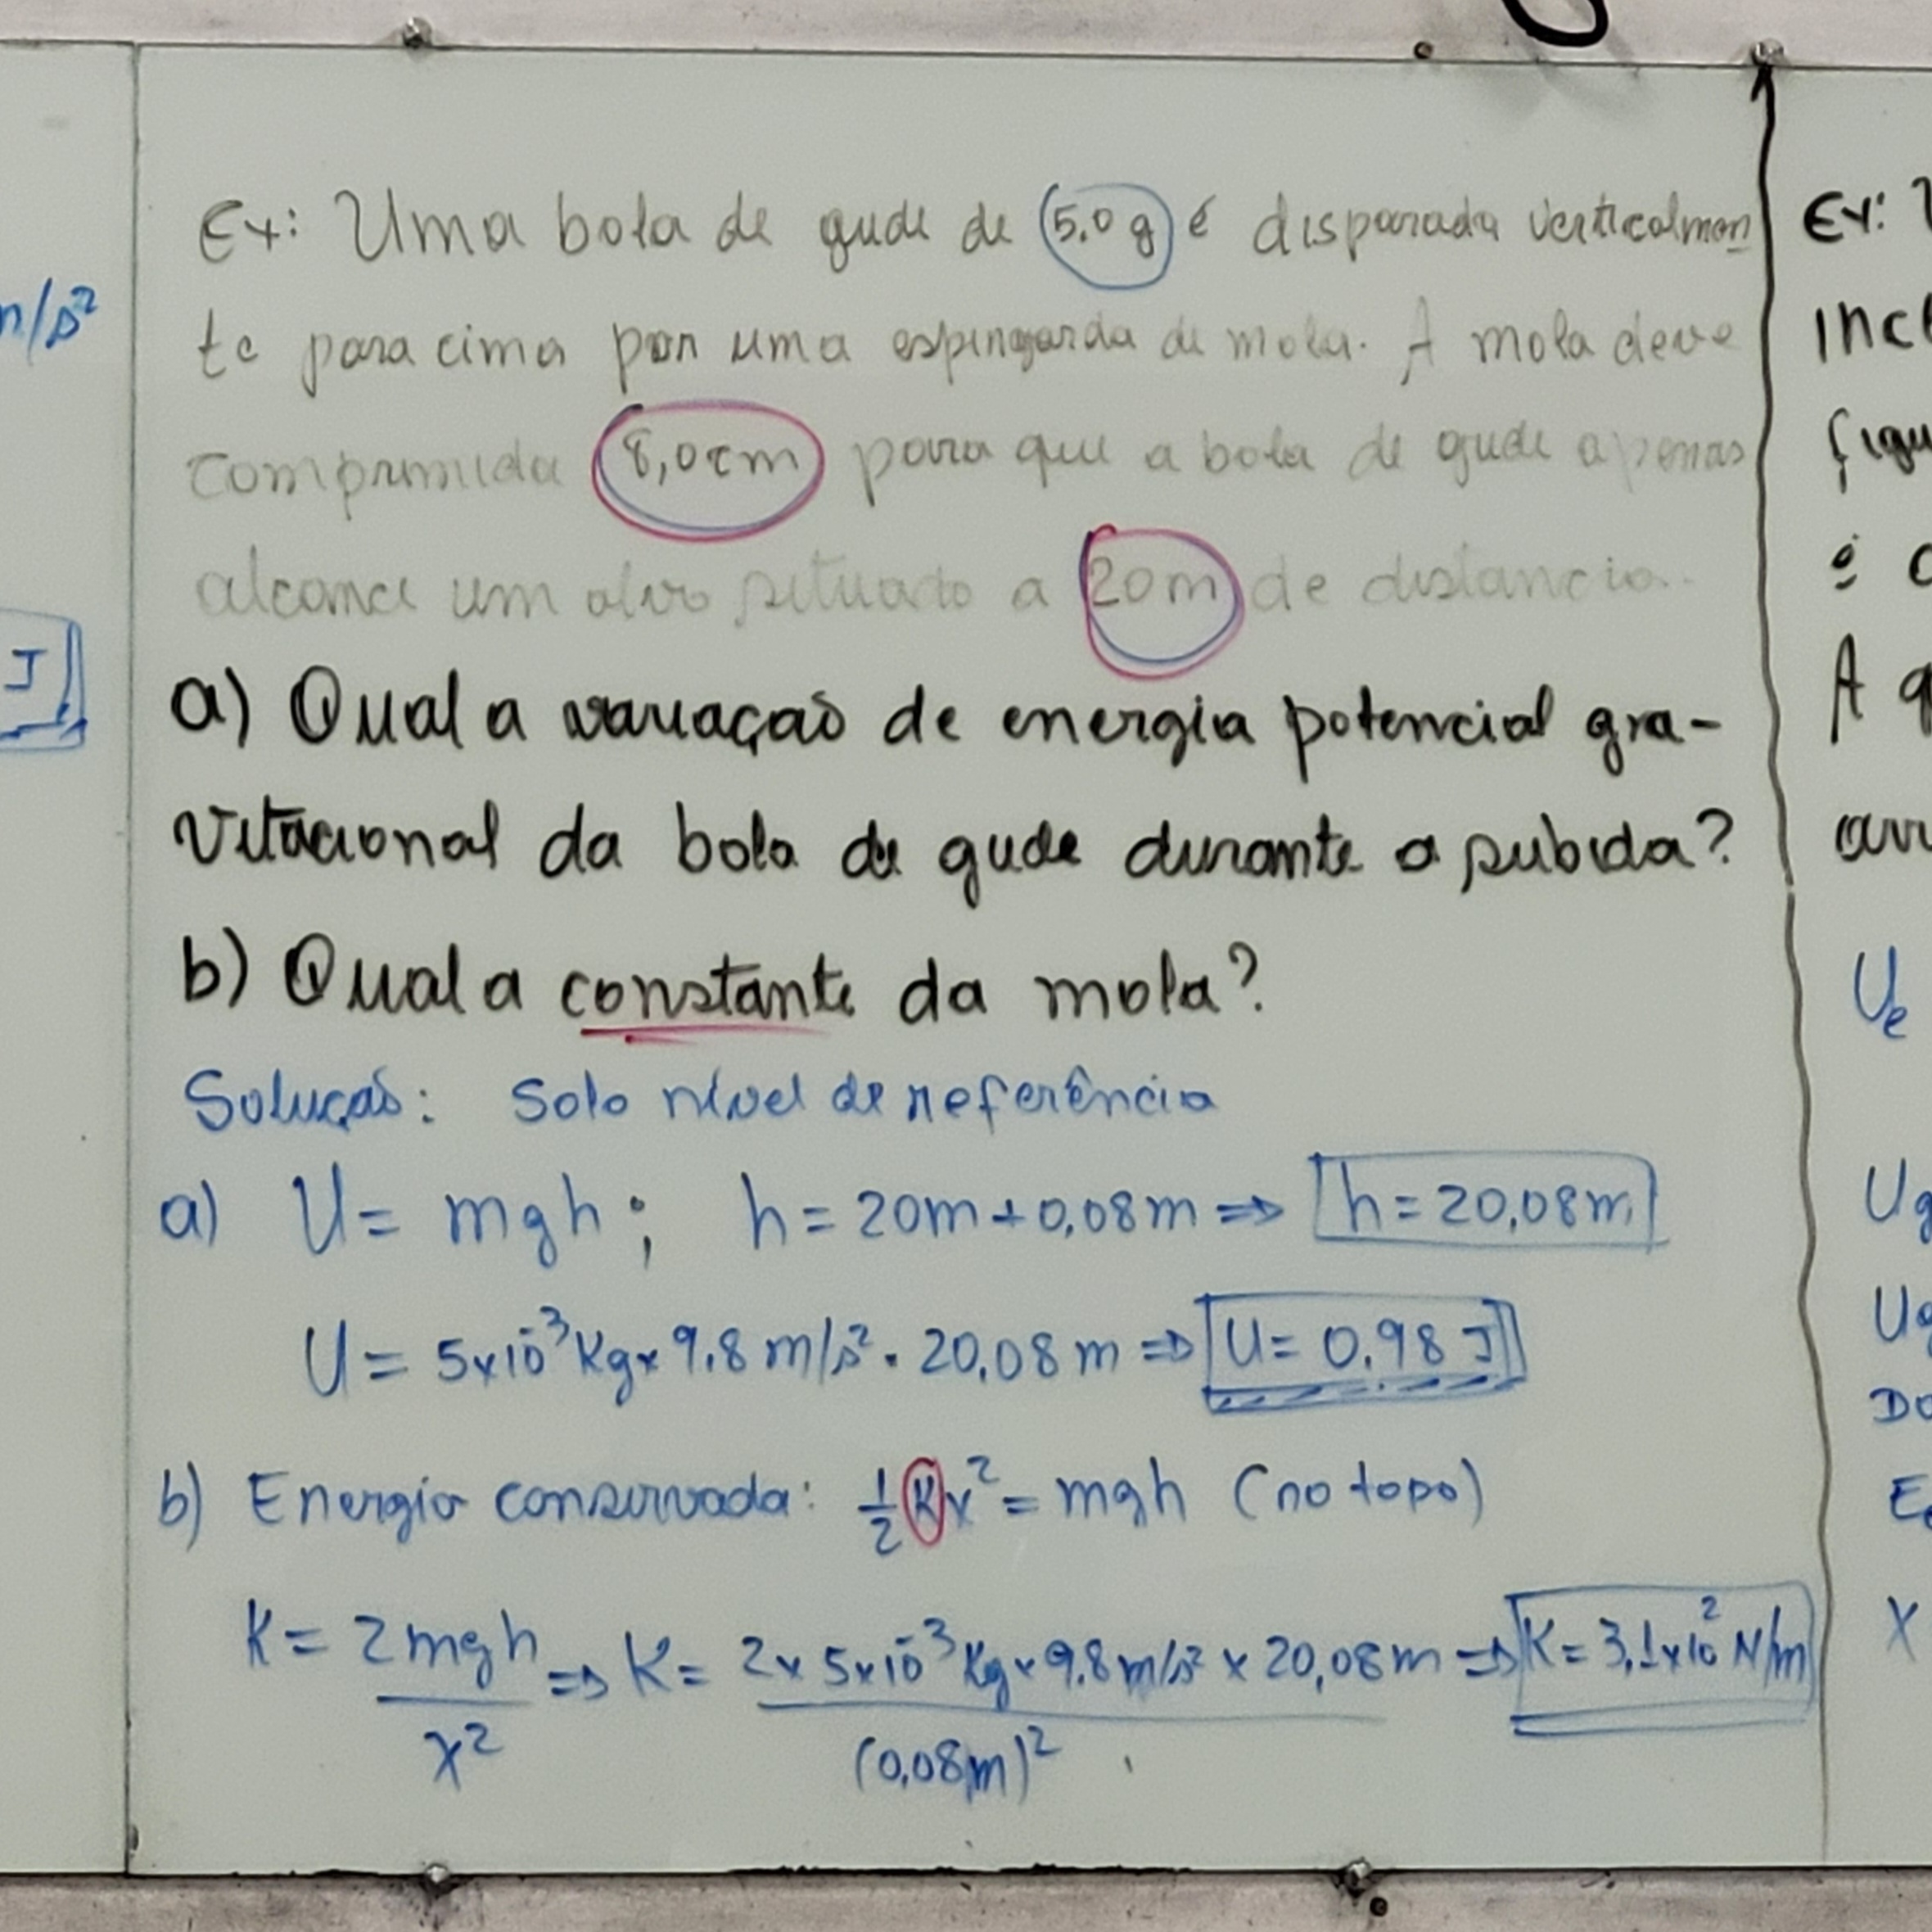 n/s²
J
Ex: Uma bola de gude de 5,0 g é disparada verticalmen
te para cima por uma espingarda de mola. A mola deve
comprimida 8,0cm para que a bola de gude apenas
alcance um alvo situado a 20m de distancia.
a) Qual a variação de energia potencial gra-
vitacional da bola de gude durante a subida?
b) Qual a constante da mola?
Solução: Solo nível de referência
a) U = mgh ; h = 20m + 0,08m ⇒ h = 20,08m
U = 5x10⁻³ Kg x 9.8 m/s² . 20,08 m ⇒ U = 0,98 J
b) Energia conservada: 1/2 K x² = mgh (no topo)
K = 2mgh/x² ⇒ K = 2 x 5x10⁻³ Kg x 9.8 m/s² x 20,08m/(0,08m)² ⇒ K = 3,1x10² N/m
Ex:
A
Ue
X